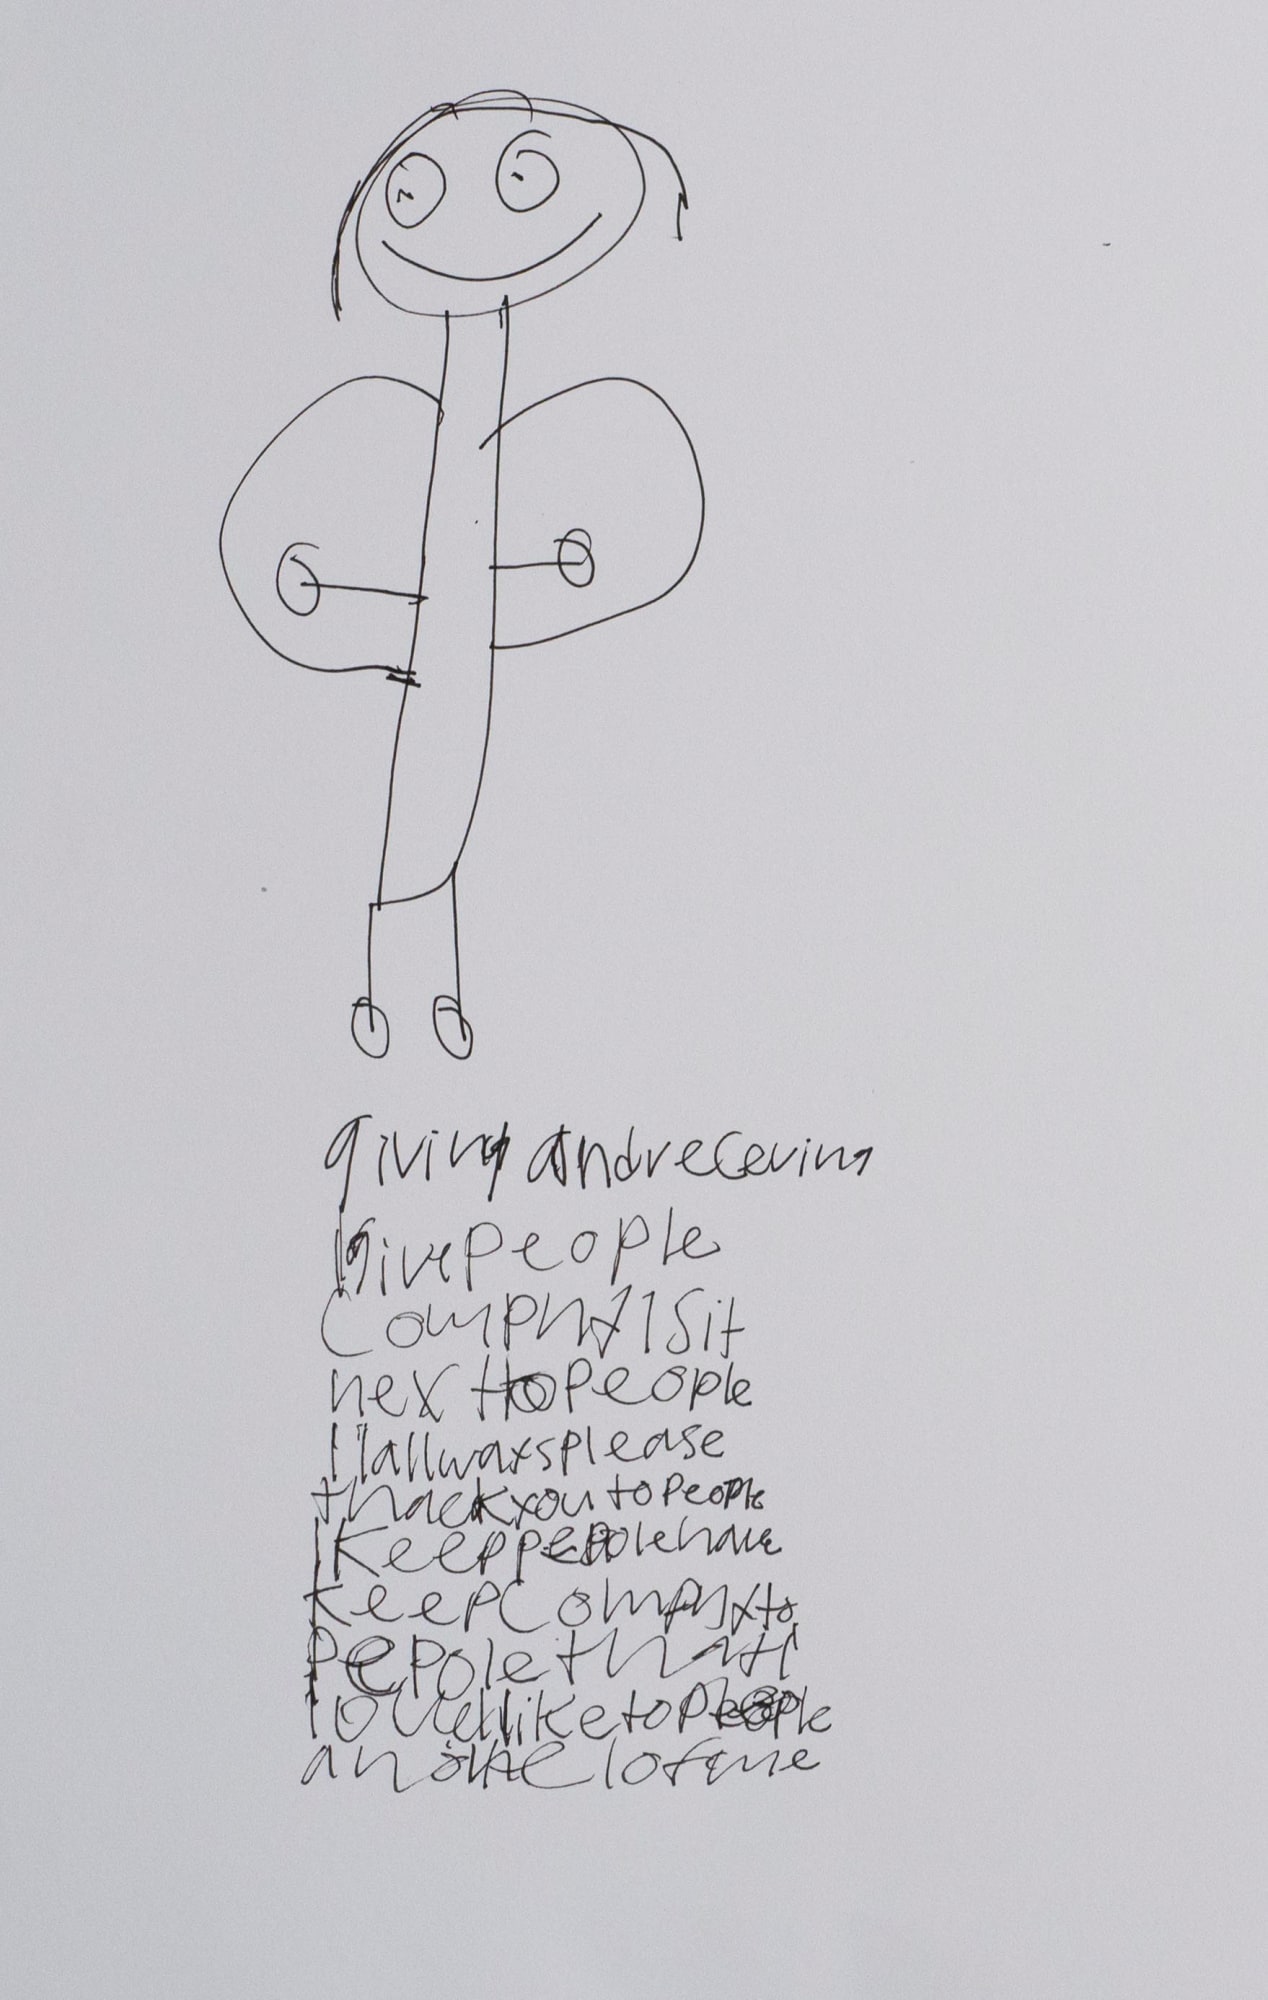 giving andreceving
I givepeople
compny I sit
nex topeople
I allwaysplease
thackyou to people
I keeppepolehave
keepcompnyto
pepolethat I
loveIliketopeople
an